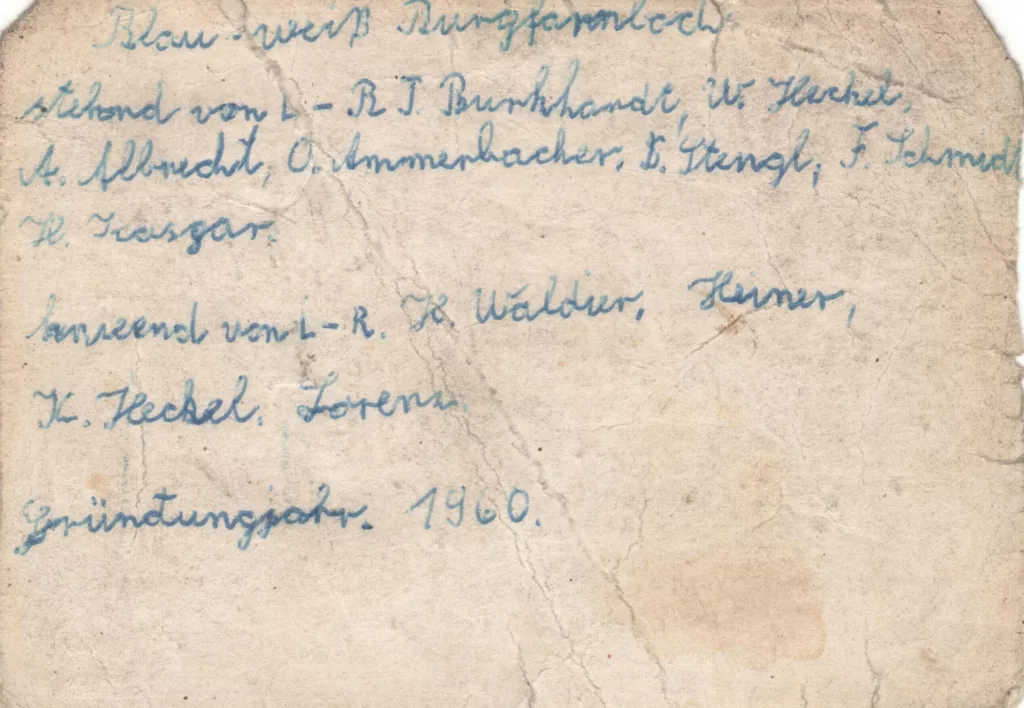 Blau-weiß Burgfarnbach
stehend von L-R J Burkhardt, W. Heckel,
A. Albrecht, O. Ammerbacher, Stengl, F. Schmidt
H.
von L-R. H. Waldier, Heiner,
K. Heckel. Lorenz
Gründungjahr. 1960.